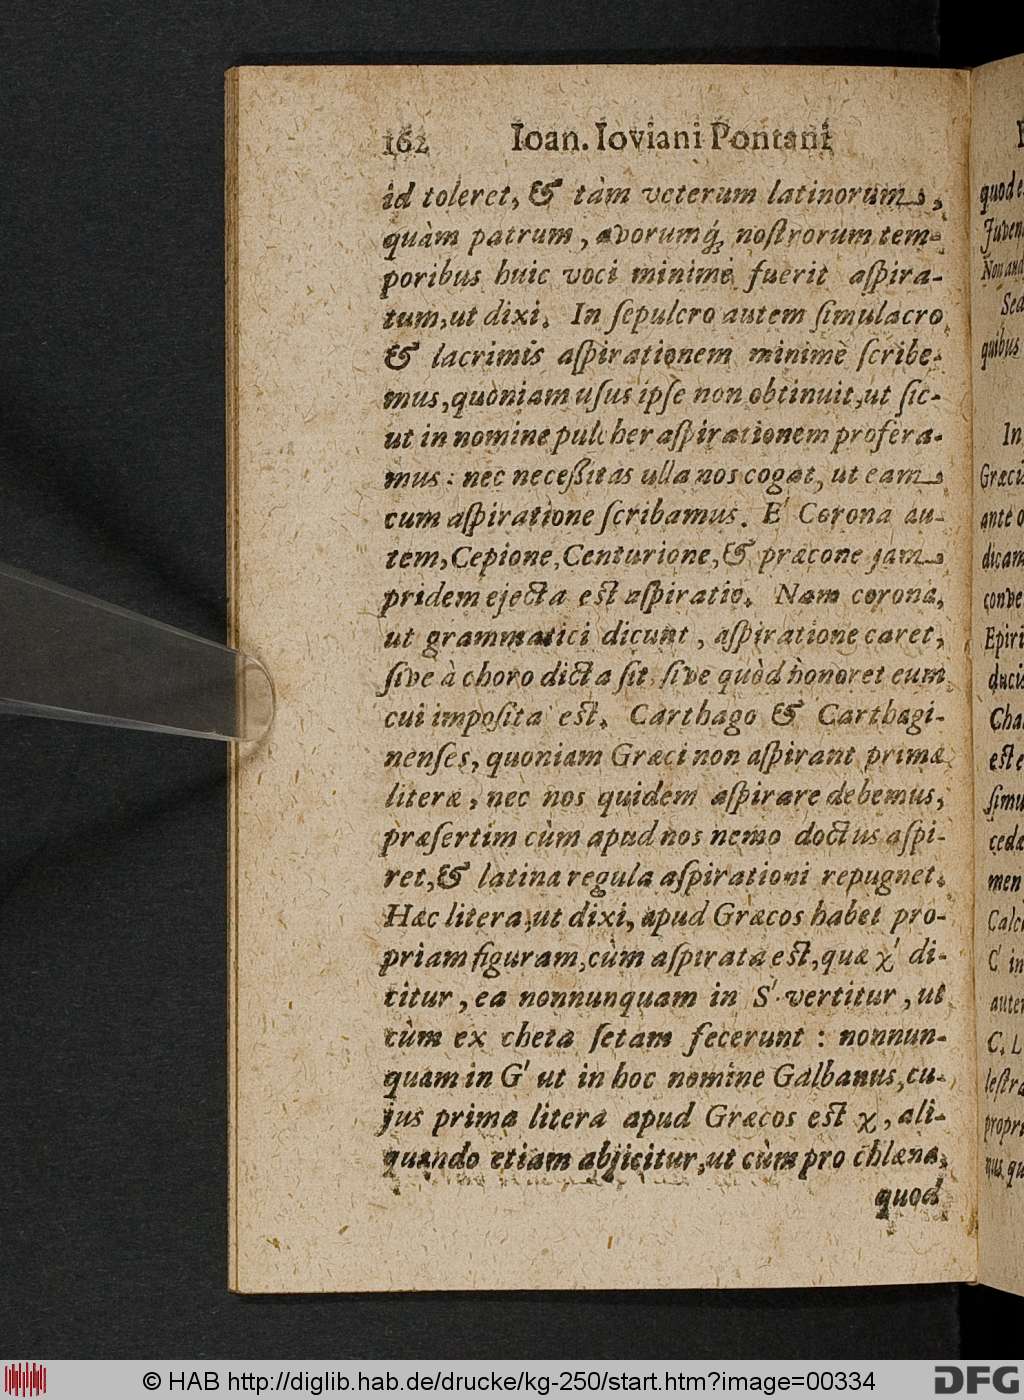 162 Ioan. Ioviani Pontani
id toleret, & tàm veterum latinorum,
quàm patrum, avorumq́; noſtrorum tem-
poribus huic voci minimè fuerit aſpira-
tum, ut dixi. In ſepulcro autem ſimulacro
& lacrimis aſpirationem minimè ſcribe-
mus, quoniam uſus ipſe non obtinuit, ut ſic-
ut in nomine pulcher aſpirationem profera-
mus: nec neceßitas ulla nos cogat, ut eam
cum aſpiratione ſcribamus. E' Corona au-
tem, Cepione, Centurione, & præcone jam
pridem ejecta eſt aſpiratio. Nam corona,
ut grammatici dicunt, aſpiratione caret,
ſive à choro dicta ſit ſive quòd honoret eum
cui impoſita eſt. Carthago & Carthagi-
nenſes, quoniam Græci non aſpirant primæ
literæ, nec nos quidem aſpirare debemus,
præſertim cùm apud nos nemo doctus aſpi-
ret, & latina regula aſpirationi repugnet.
Hæc litera, ut dixi, apud Græcos habet pro-
priam figuram, cùm aſpirata eſt, quæ χ' di-
citur, ea nonnunquam in S' vertitur, ut
cùm ex cheta ſetam fecerunt: nonnun-
quam in G' ut in hoc nomine Galbanus, cu-
jus prima litera apud Græcos eſt χ, ali-
quando etiam abjicitur, ut cùm pro chlæna,
quod
quod
Juven
Non aud
Sed
quibus
In
Græci
ante
dicam
Epiri
ducis
Cha
eſt
ſimu
ceda
men
C' in
autem
C. L
propri
nus qu
© HAB http://diglib.hab.de/drucke/kg-250/start.htm?image=00334
DFG